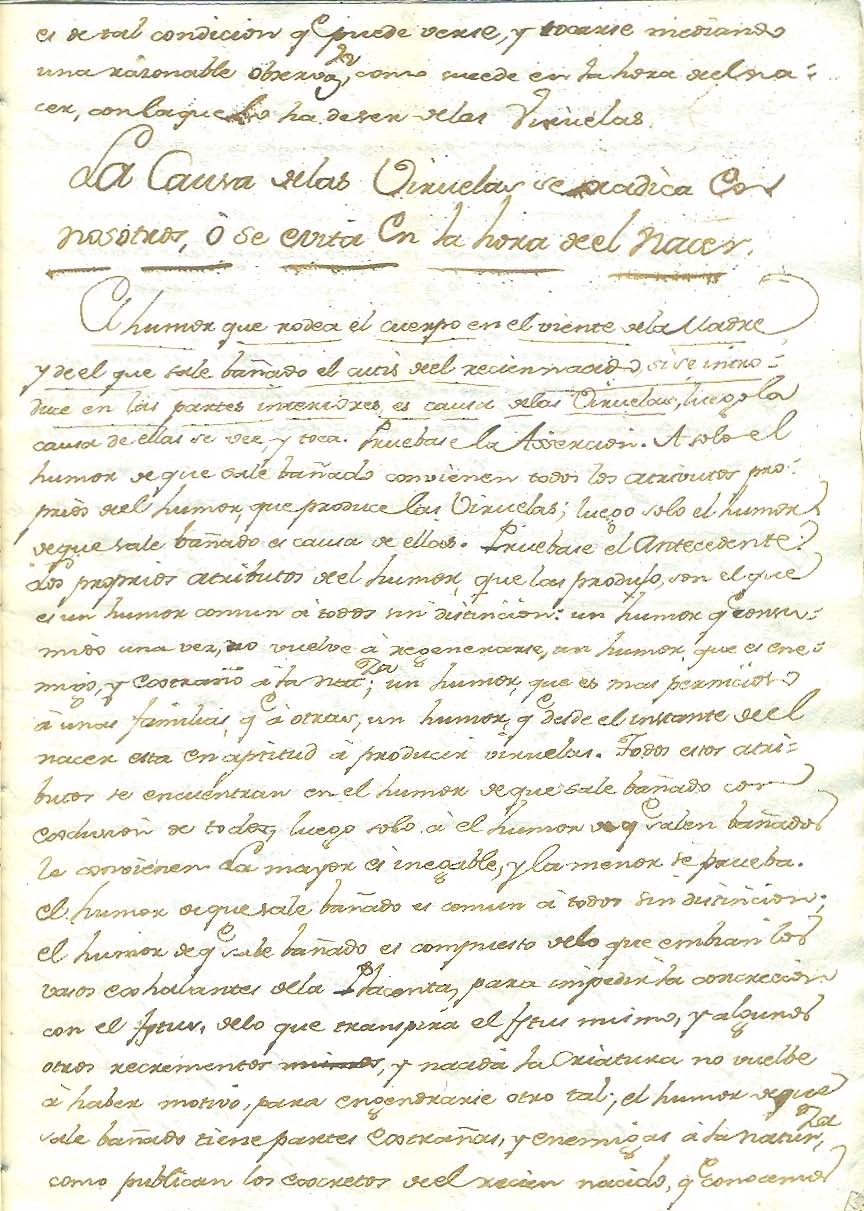 es de tal condicion q.e puede verse, y tocarse mediando
una razonable observa.on, como sucede en la hora del na=
cer, con la que ha de ser de las Viruelas.
La Causa de las Viruelas se radica Con
nosotros, ò se evita En la hora de el Nacer.
El humor que rodea el cuerpo en el vientre de la Madre
y de el que sale bañado el cutis de el recien nacido, si se intro=
duce en las partes interiores, es causa de las Viruelas, luego la
causa de ellas se vee, y toca. Pruebase la Assercion. A solo el
humor de que sale bañado convienen todos los atributos pro=
prios de el humor, que produce las Viruelas; luego solo el humor
de que sale bañado es causa de ellas. Pruebase el Antecedente:
Los proprios atributos de el humor, que las produjo, son el que
es un humor comun à todos sin distincion: un humor q.e consu=
mido una vez, no vuelve à regenerarse, un humor, que es ene=
migo, y extraño à la nat.za; un humor, que es mas pernicioso
à unas familias, q.e à otras, un humor, q.e desde el instante de el
nacer esta en aptitud à producir viruelas. Todos estos atri=
butos se encuentran en el humor de que sale bañado con
exclusion de todos, luego solo à el humor de q.e salen bañados
le convienen. La mayor es inegable, y la menor se prueba.
el humor de que sale bañado es comun à todos sin distincion;
el humor de q.e sale bañado es compuesto de lo que embian los
vasos exhalantes de la Placenta, para impedir la concrecion
con el fętus, de lo que transpira el fętus mismo, y algunos
otros recrementos, y nacida la Criatura no vuelbe
à haber motivo, para engendrarse otro tal; el humor de que
sale bañado tiene partes extrañas, y enemigas à la natur.za,
como publican los excretos de el recien nacido, q.e conocemos